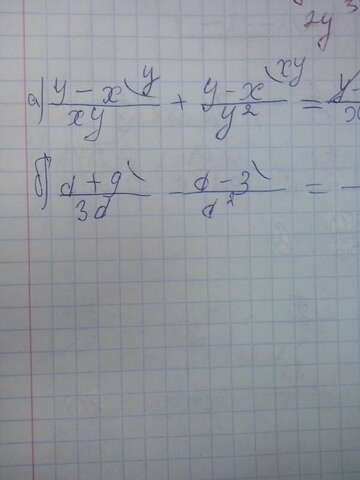 2y³
а) (y - x)\ʸ / xy + (y - x)\ˣʸ / y² = y -
x
б) (d + 9)\ / 3d - (d - 3)\ / d² =